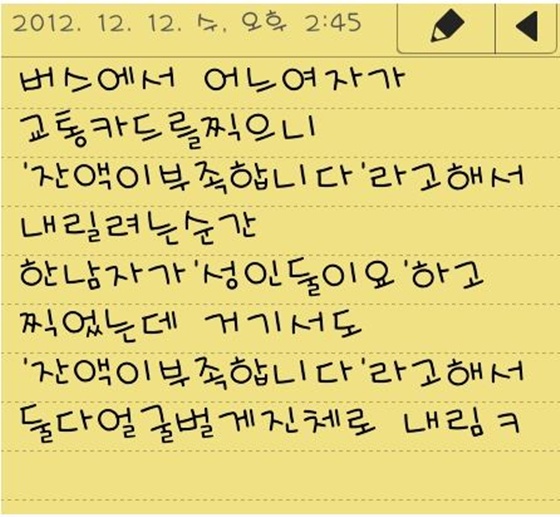 2012. 12. 12. 수, 오후 2:45
버스에서 어느여자가
교통카드를찍으니
'잔액이부족합니다'라고해서
내릴려는순간
한남자가'성인둘이요'하고
찍었는데 거기서도
'잔액이부족합니다'라고해서
둘다얼굴벌게진체로 내림ㅋ